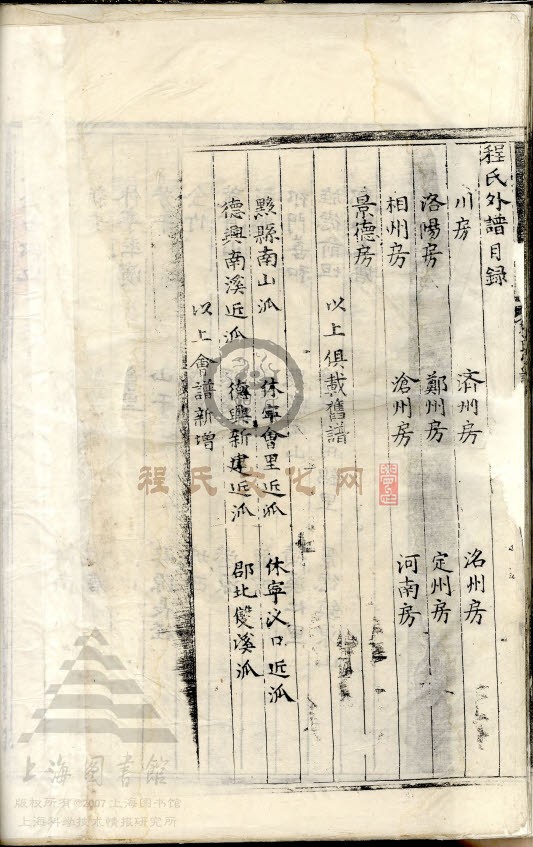 程氏外譜目録
川房 済州房 洺州房
洛陽房 鄭州房 定州房
相州房 滄州房 河南房
景德房
以上俱載舊譜
黟縣南山派 休寧會里近派 休寧汊口近派
德興南溪近派 德興新建近派 郡北雙溪派
以上會譜新增
程氏文化网
上海图书馆
版权所有©2007上海图书馆
上海科学技术情报研究所